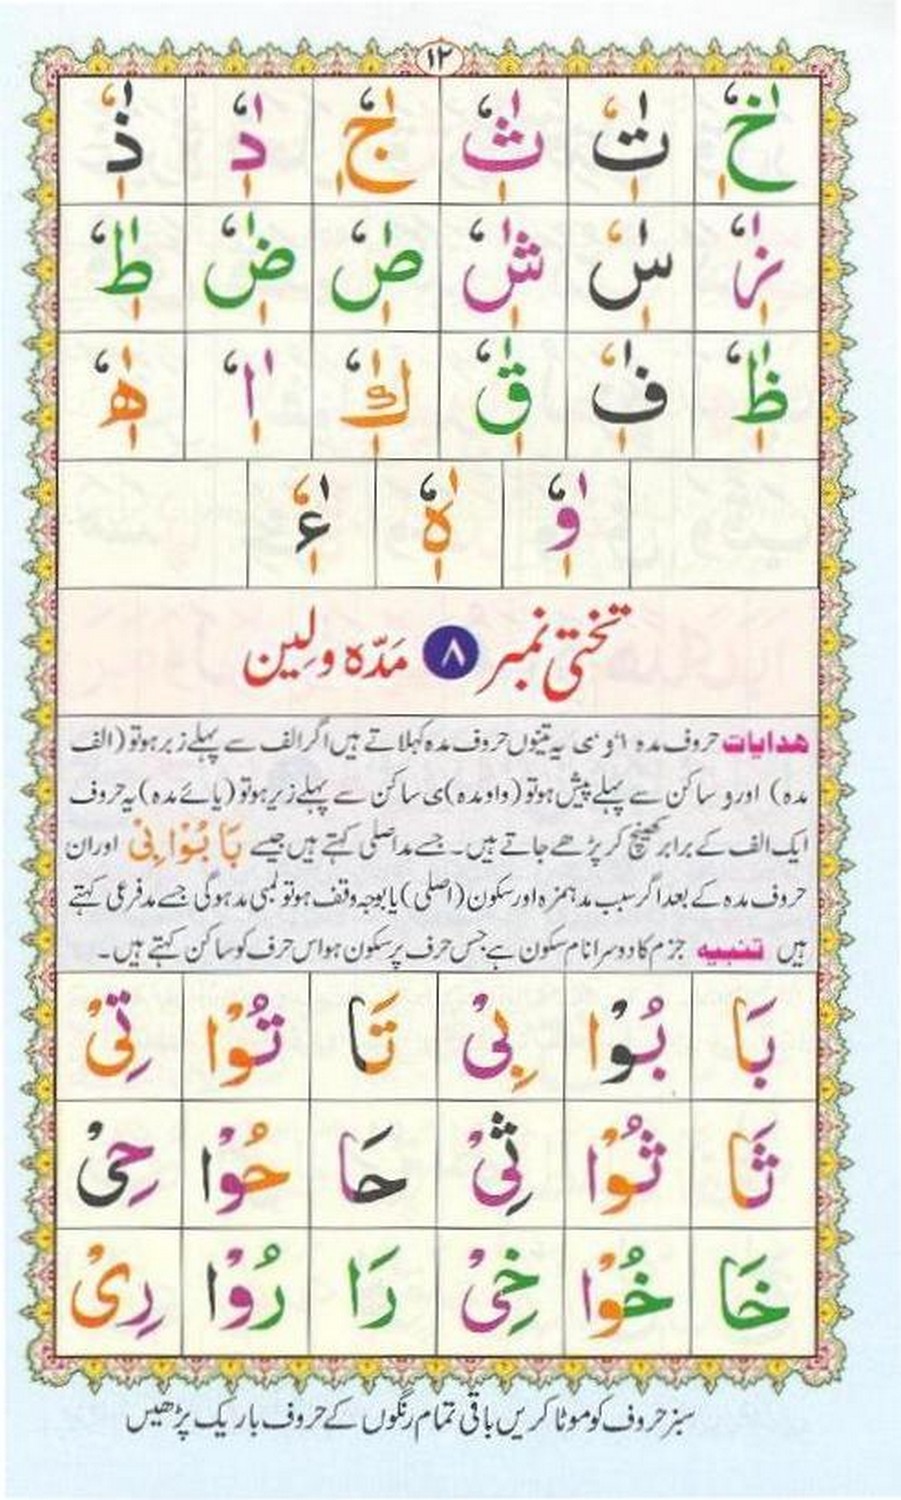 ١٢
خٰ تٰ ثٰ جٰ دٰ ذٰ
زٰ سٰ شٰ صٰ ضٰ طٰ
ظٰ فٰ قٰ كٰ اٰ هٰ
وٰ هٰ ءٰ
تختی نمبر ٨ مَدّہ ولِین
ھدایات حروف مدہ ا، و، ی یہ تینوں حروف مدہ کہلاتے ہیں اگر الف سے پہلے زبر ہو تو (الف
مدہ) اور و ساکن سے پہلے پیش ہو تو (واو مدہ) ی ساکن سے پہلے زیر ہو تو (یائے مدہ) یہ حروف
ایک الف کے برابر کھینچ کر پڑھے جاتے ہیں۔ جسے مد اصلی کہتے ہیں جیسے بَا بُوْا بِیْ اور ان
حروف مدہ کے بعد اگر سبب مد ہمزہ اور سکون (اصلی) یا بوجہ وقف ہو تو لمبی مد ہوگی جسے مد فرعی کہتے
ہیں تنبیہ جزم کا دوسرا نام سکون ہے جس حرف پر سکون ہو اس حرف کو ساکن کہتے ہیں۔
بَا بُوْا بِیْ تَا تُوْا تِیْ
ثَا ثُوْا ثِیْ حَا حُوْا حِیْ
خَا خُوْا خِیْ رَا رُوْا رِیْ
سبز حروف کو موٹا کریں باقی تمام رنگوں کے حروف باریک پڑھیں